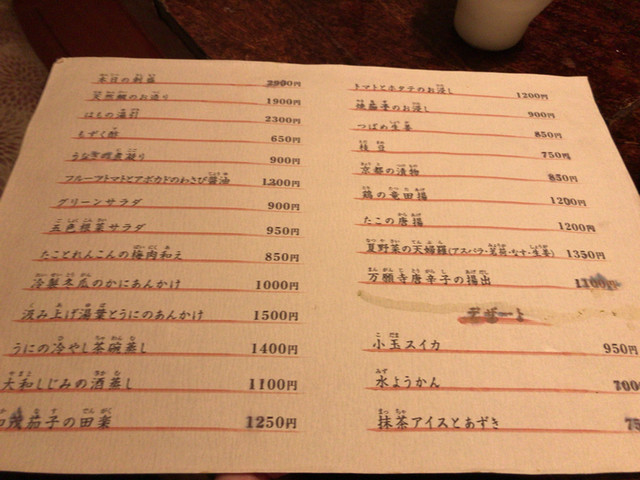 本日の刺盛 2900円
天然鯛のお造り 1900円
はもの湯引 2300円
もずく酢 650円
うなぎの煮凝り 900円
フルーツトマトとアボカドのわさび醤油 1200円
グリーンサラダ 900円
五色根菜サラダ 950円
たことれんこんの梅肉和え 850円
冷製冬瓜のかにあんかけ 1000円
汲み上げ湯葉とうにのあんかけ 1500円
うにの冷やし茶碗蒸し 1400円
大和しじみの酒蒸し 1100円
加茂茄子の田楽 1250円
トマトとホタテのお浸し 1200円
のお浸し 900円
つばめ生姜 850円
枝豆 750円
京都の漬物 850円
鶏の竜田揚 1200円
たこの唐揚 1200円
夏野菜の天婦羅(アスパラ・茗荷・なす・生姜) 1350円
万願寺唐辛子の揚出し 1100円
デザート
小玉スイカ 950円
水ようかん 700
抹茶アイスとあずき